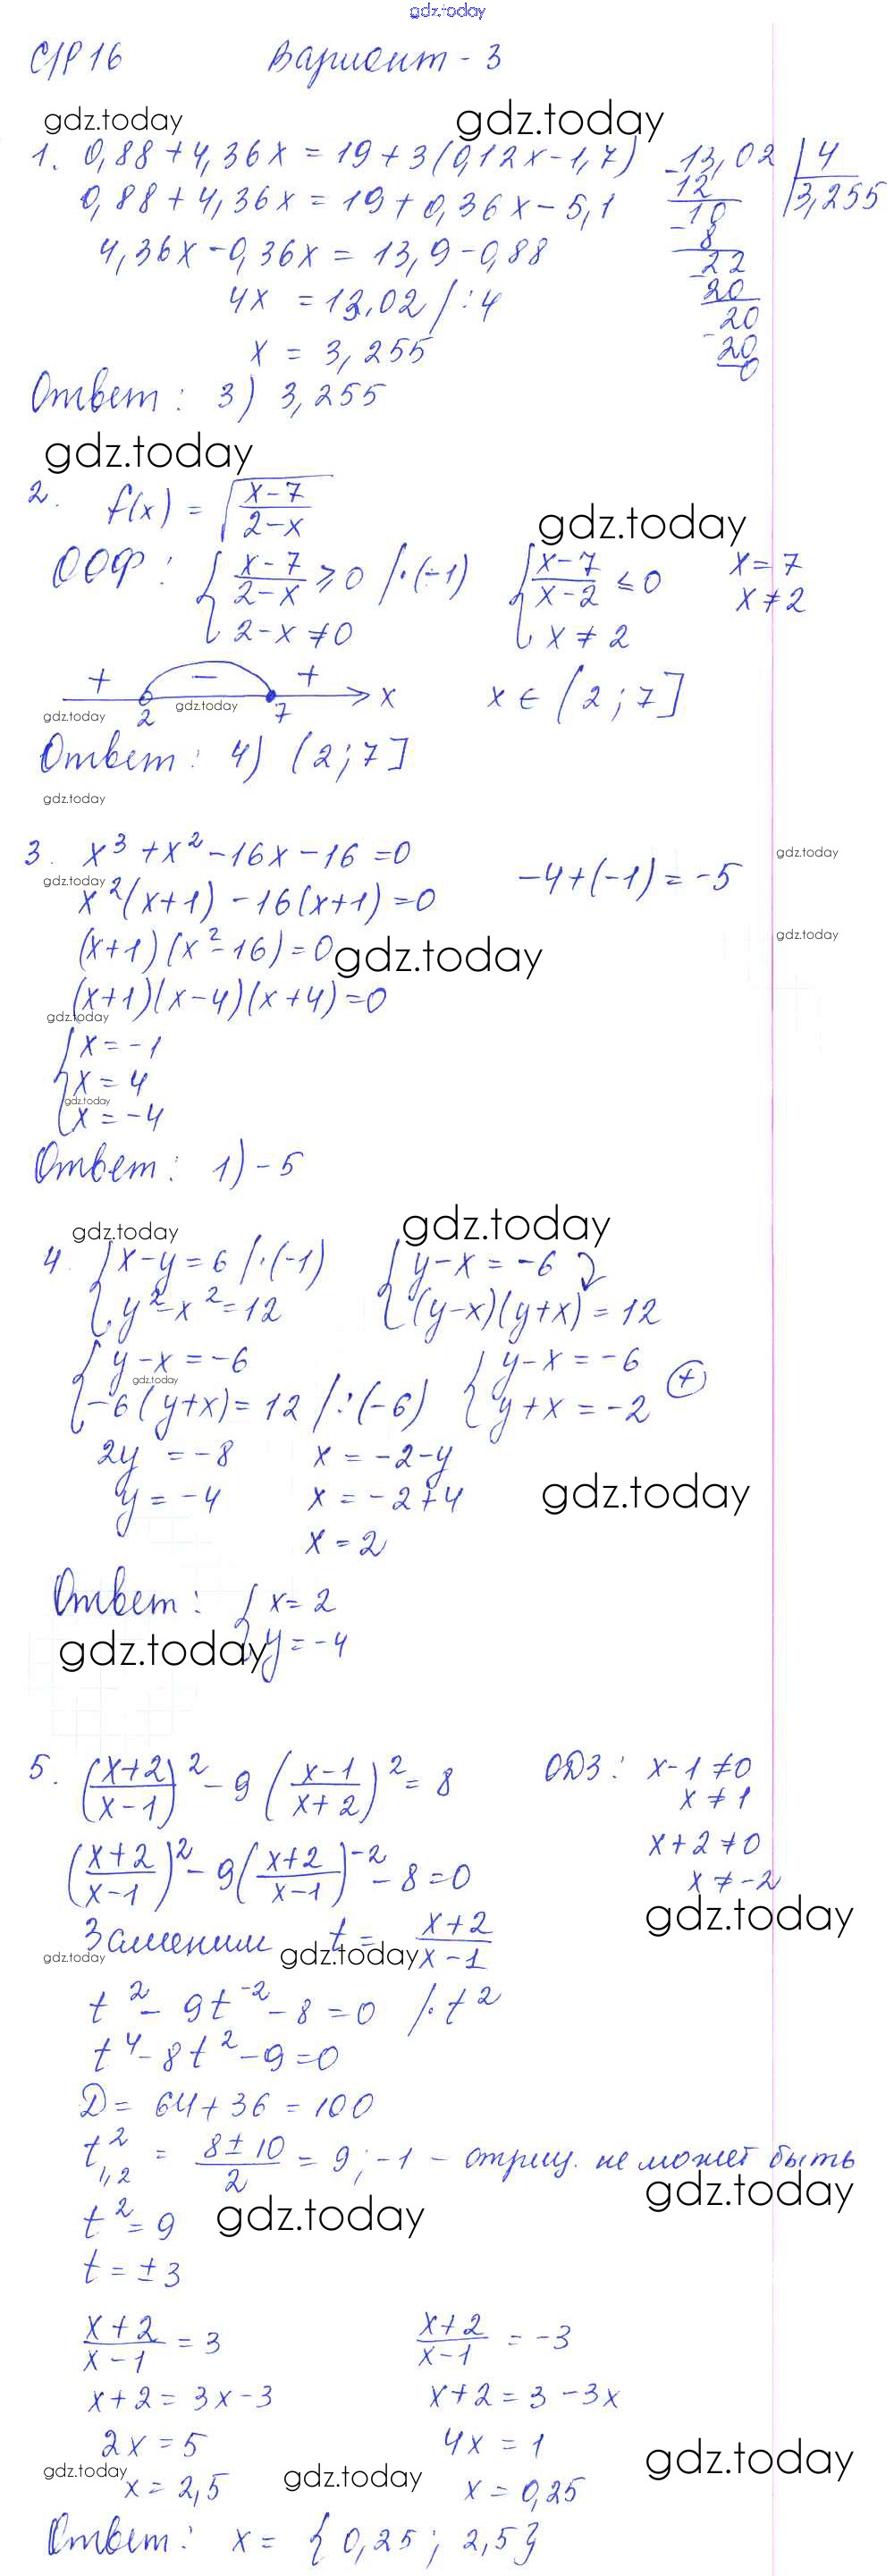 gdz.today
С/Р 16 Вариант - 3
gdz.today gdz.today
1. 0,88 + 4,36x = 19 + 3(0,12x - 1,7)
0,88 + 4,36x = 19 + 0,36x - 5,1
4,36x - 0,36x = 13,9 - 0,88
4x = 13,02 / : 4
x = 3,255
13,02 | 4
12 3,255
10
8
22
20
20
20
0
Ответ: 3) 3,255
gdz.today
2. f(x) = √((x-7)/(2-x))
gdz.today
ООФ: { (x-7)/(2-x) ≥ 0 / ·(-1) { (x-7)/(x-2) ≤ 0 x = 7
2-x ≠ 0 x ≠ 2 x ≠ 2
+ - +
2 7 x x ∈ (2; 7]
gdz.today gdz.today
Ответ: 4) (2; 7]
gdz.today
3. x³ + x² - 16x - 16 = 0
gdz.today
gdz.today
x²(x+1) - 16(x+1) = 0 -4 + (-1) = -5
gdz.today
(x+1)(x²-16) = 0
gdz.today
(x+1)(x-4)(x+4) = 0
gdz.today
x = -1
x = 4
gdz.today
x = -4
Ответ: 1) -5
gdz.today gdz.today
4. { x-y = 6 / ·(-1) { y-x = -6
y²-x² = 12 (y-x)(y+x) = 12
{ y-x = -6 { y-x = -6
gdz.today
-6(y+x) = 12 / :(-6) y+x = -2 (+)
2y = -8 x = -2-y
y = -4 x = -2+4
gdz.today
x = 2
Ответ: { x = 2
gdz.today
y = -4
5. ((x+2)/(x-1))² - 9((x-1)/(x+2))² = 8 ОДЗ: x-1 ≠ 0
x ≠ 1
((x+2)/(x-1))² - 9((x+2)/(x-1))⁻² - 8 = 0 x+2 ≠ 0
x ≠ -2
gdz.today
Заменим t = (x+2)/(x-1)
gdz.today gdz.today
t² - 9t⁻² - 8 = 0 / · t²
t⁴ - 8t² - 9 = 0
D = 64 + 36 = 100
t²₁,₂ = (8 ± 10)/2 = 9; -1 - отриц. не может быть
gdz.today
t² = 9
gdz.today
t = ±3
(x+2)/(x-1) = 3 (x+2)/(x-1) = -3
x+2 = 3x-3 x+2 = 3-3x
2x = 5 4x = 1
gdz.today
gdz.today gdz.today
x = 2,5 x = 0,25
Ответ: x = {0,25; 2,5}